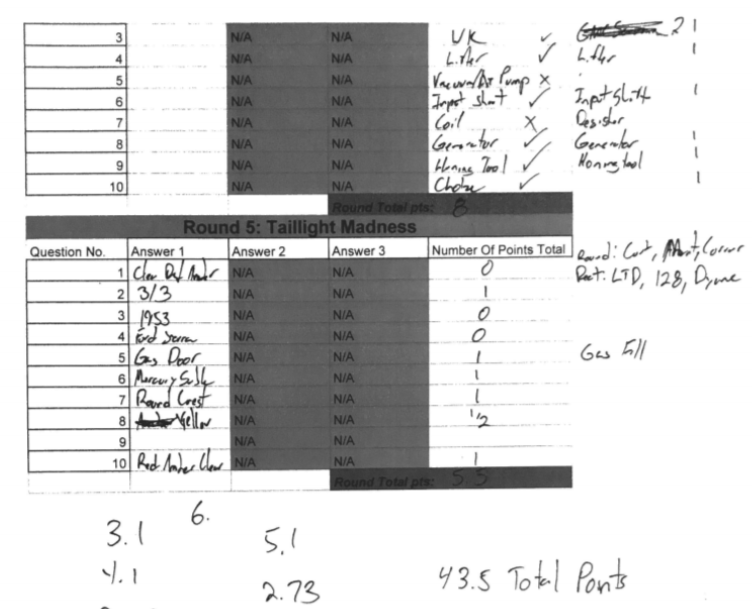 3 N/A N/A UK ✓ 21 1
4 N/A N/A Lifter ✓ Lifter 1
5 N/A N/A Vacuum/Air Pump ×
6 N/A N/A Input Shaft ✓ Input Shaft 1
7 N/A N/A Coil ×
8 N/A N/A Generator ✓ Generator 1
9 N/A N/A Honing Tool ✓ Honing tool 1
10 N/A N/A Choke ✓ 1
Round Total pts: 8
Round 5: Taillight Madness
Question No. Answer 1 Answer 2 Answer 3 Number Of Points Total
1 Clear Red Amber N/A N/A 0
2 3/3 N/A N/A 1
3 1953 N/A N/A 0
4 Ford N/A N/A 0
5 Gas Door N/A N/A 1 Gas Fill
6 Mercury N/A N/A 1
7 Round Crest N/A N/A 1
8 Yellow N/A N/A 1/2
9 N/A N/A
10 Red Amber Clear N/A N/A 1
Round Total pts: 5.5
Rect: LTD, 128,
6.
3.1 5.1
4.1 2.73 43.5 Total Points